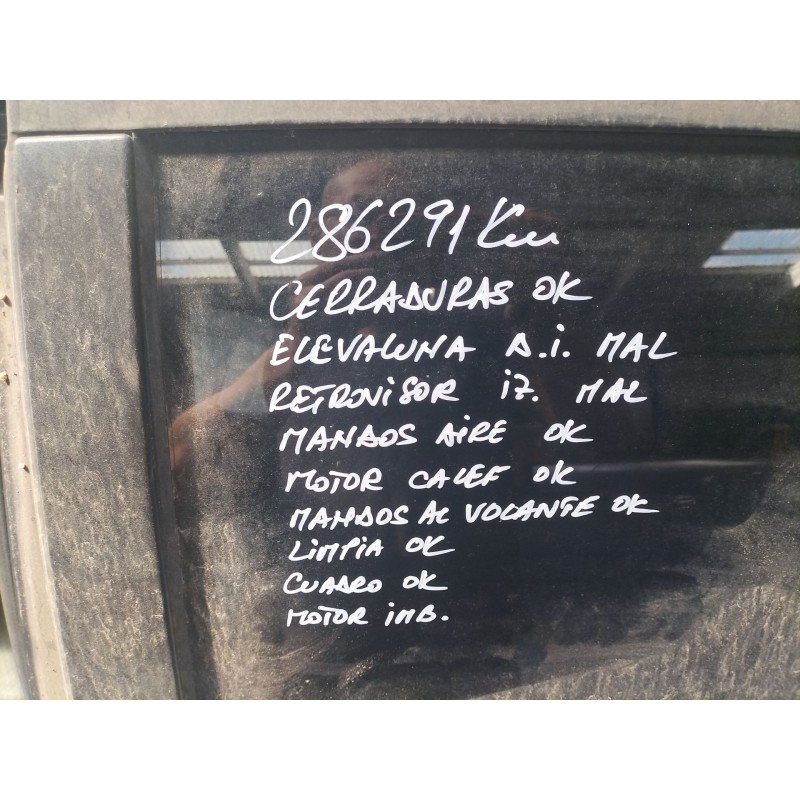 286291 Km
CERRADURAS OK
ELEVALUNA D.i. MAL
RETROVISOR iZ. MAL
MANDOS AIRE OK
MOTOR CALEF OK
MANDOS AL VOLANTE OK
LIMPIA OK
CUADRO OK
MOTOR INB.